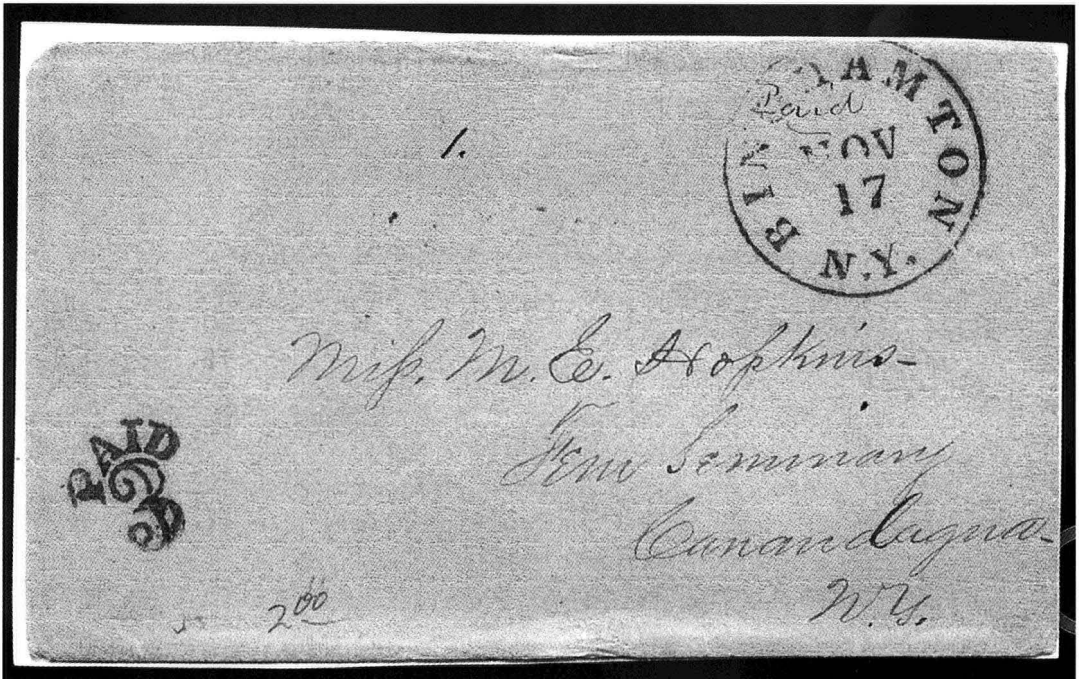 BINGHAMTON
Paid
NOV
17
N.Y.
1.
Miss. M. E. Hopkins-
Fem Seminary
Canandagua-
N.Y.
PAID
3
2 00